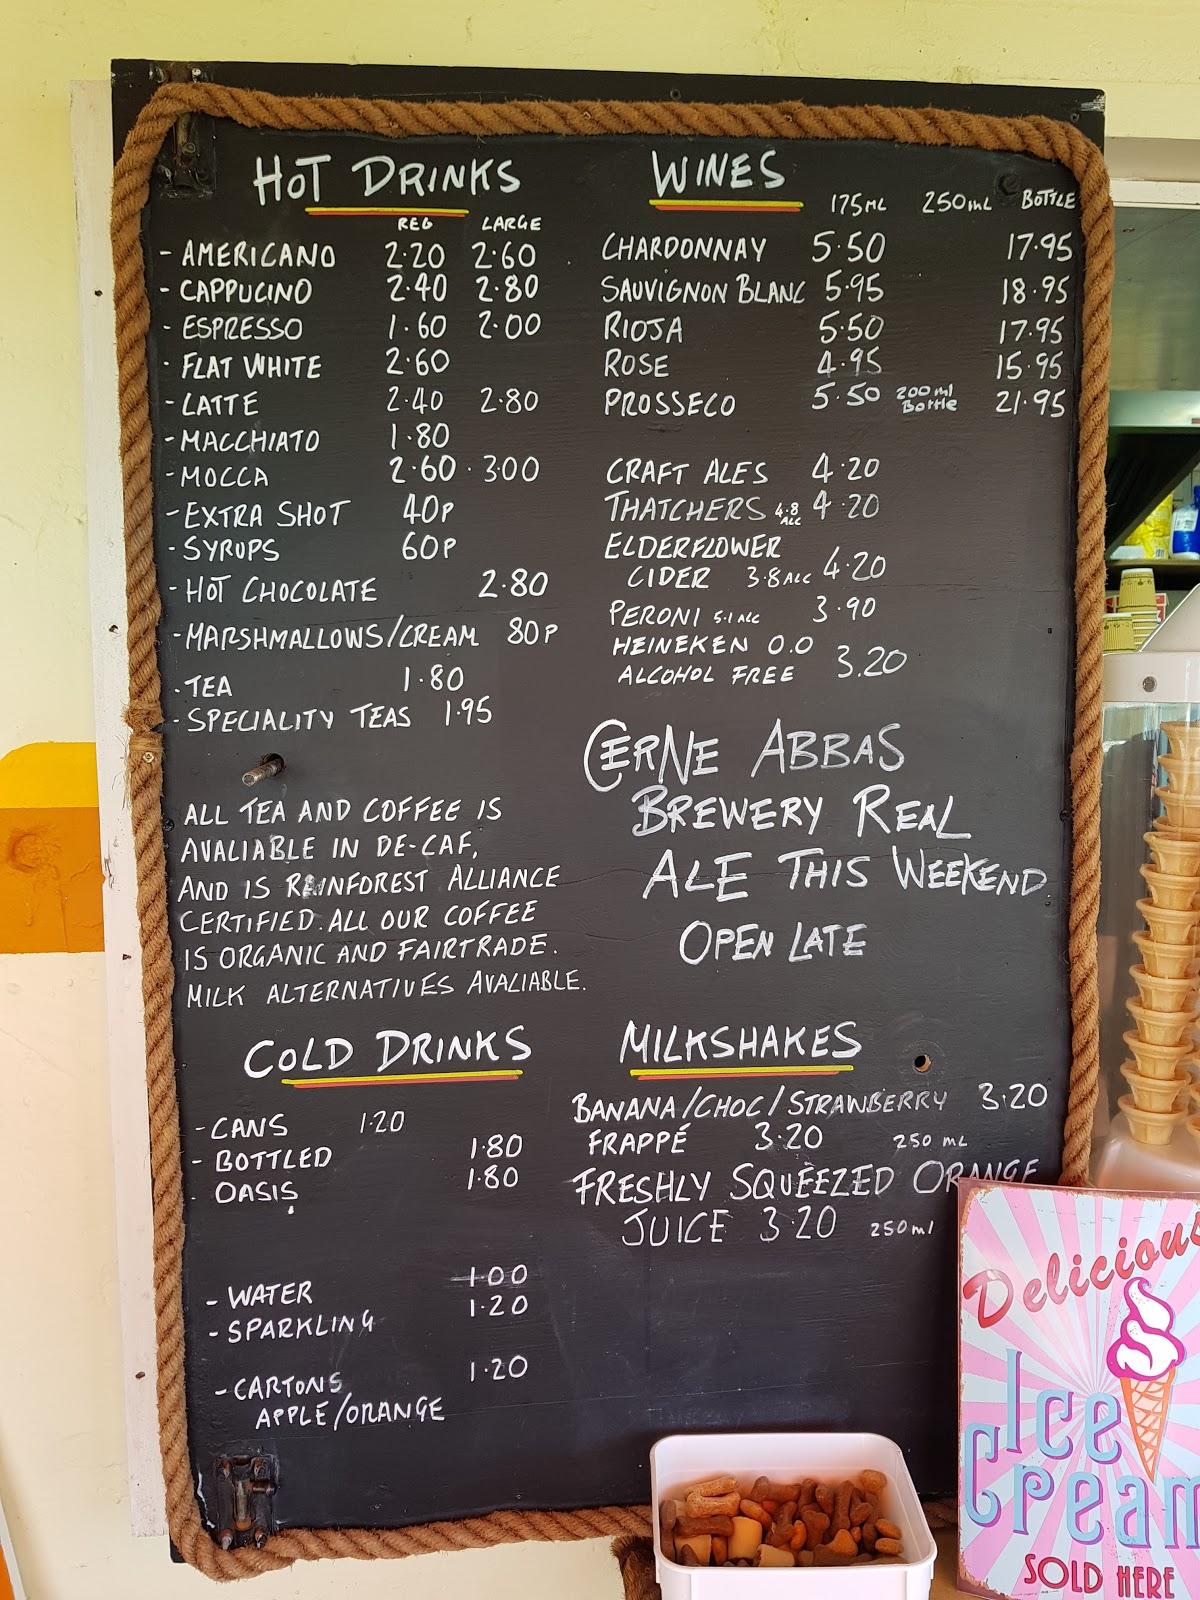 HOT DRINKS
REG LARGE
- AMERICANO 2·20 2·60
- CAPPUCINO 2·40 2·80
- ESPRESSO 1·60 2·00
- FLAT WHITE 2·60
- LATTE 2·40 2·80
- MACCHIATO 1·80
- MOCCA 2·60 · 3·00
- EXTRA SHOT 40P
- SYRUPS 60P
- HOT CHOCOLATE 2·80
- MARSHMALLOWS/CREAM 80P
- TEA 1·80
- SPECIALITY TEAS 1·95
ALL TEA AND COFFEE IS
AVALIABLE IN DE-CAF,
AND IS RAINFOREST ALLIANCE
CERTIFIED. ALL OUR COFFEE
IS ORGANIC AND FAIRTRADE.
MILK ALTERNATIVES AVALIABLE.
COLD DRINKS
- CANS 1·20
- BOTTLED 1·80
- OASIS 1·80
- WATER 1·00
- SPARKLING 1·20
- CARTONS 1·20
APPLE/ORANGE
WINES
175ML 250ML BOTTLE
CHARDONNAY 5·50 17·95
SAUVIGNON BLANC 5·95 18·95
RIOJA 5·50 17·95
ROSE 4·95 15·95
PROSSECO 5·50 200ml Bottle 21·95
CRAFT ALES 4·20
THATCHERS 4·8 ALC 4·20
ELDERFLOWER
CIDER 3·8 ALC 4·20
PERONI 5·1 ALC 3·90
HEINEKEN 0.0
ALCOHOL FREE 3.20
CERNE ABBAS
BREWERY REAL
ALE THIS WEEKEND
OPEN LATE
MILKSHAKES
BANANA/CHOC/STRAWBERRY 3·20
FRAPPÉ 3·20 250 ML
FRESHLY SQUEEZED ORANGE
JUICE 3·20 250ml
Delicious
Ice
Cream
SOLD HERE